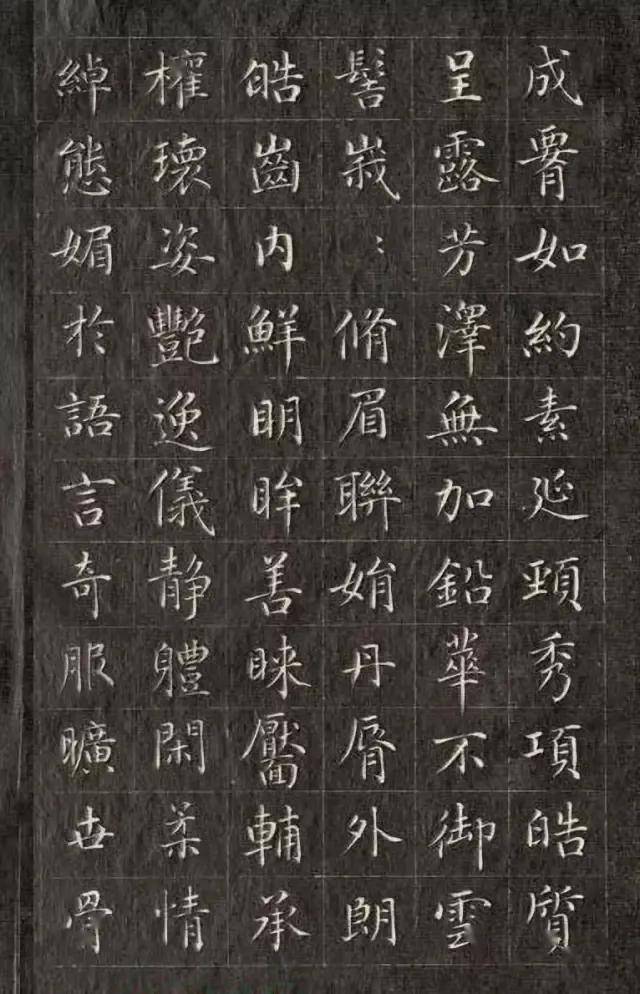 成䯧如約素延頸秀項皓質
呈露芳澤無加鉛華不御雲
髻峩〻脩眉聯娟丹脣外朗
皓齒內鮮明眸善睞靨輔承
權瓌姿豔逸儀靜體閑柔情
綽態媚於語言奇服曠世骨